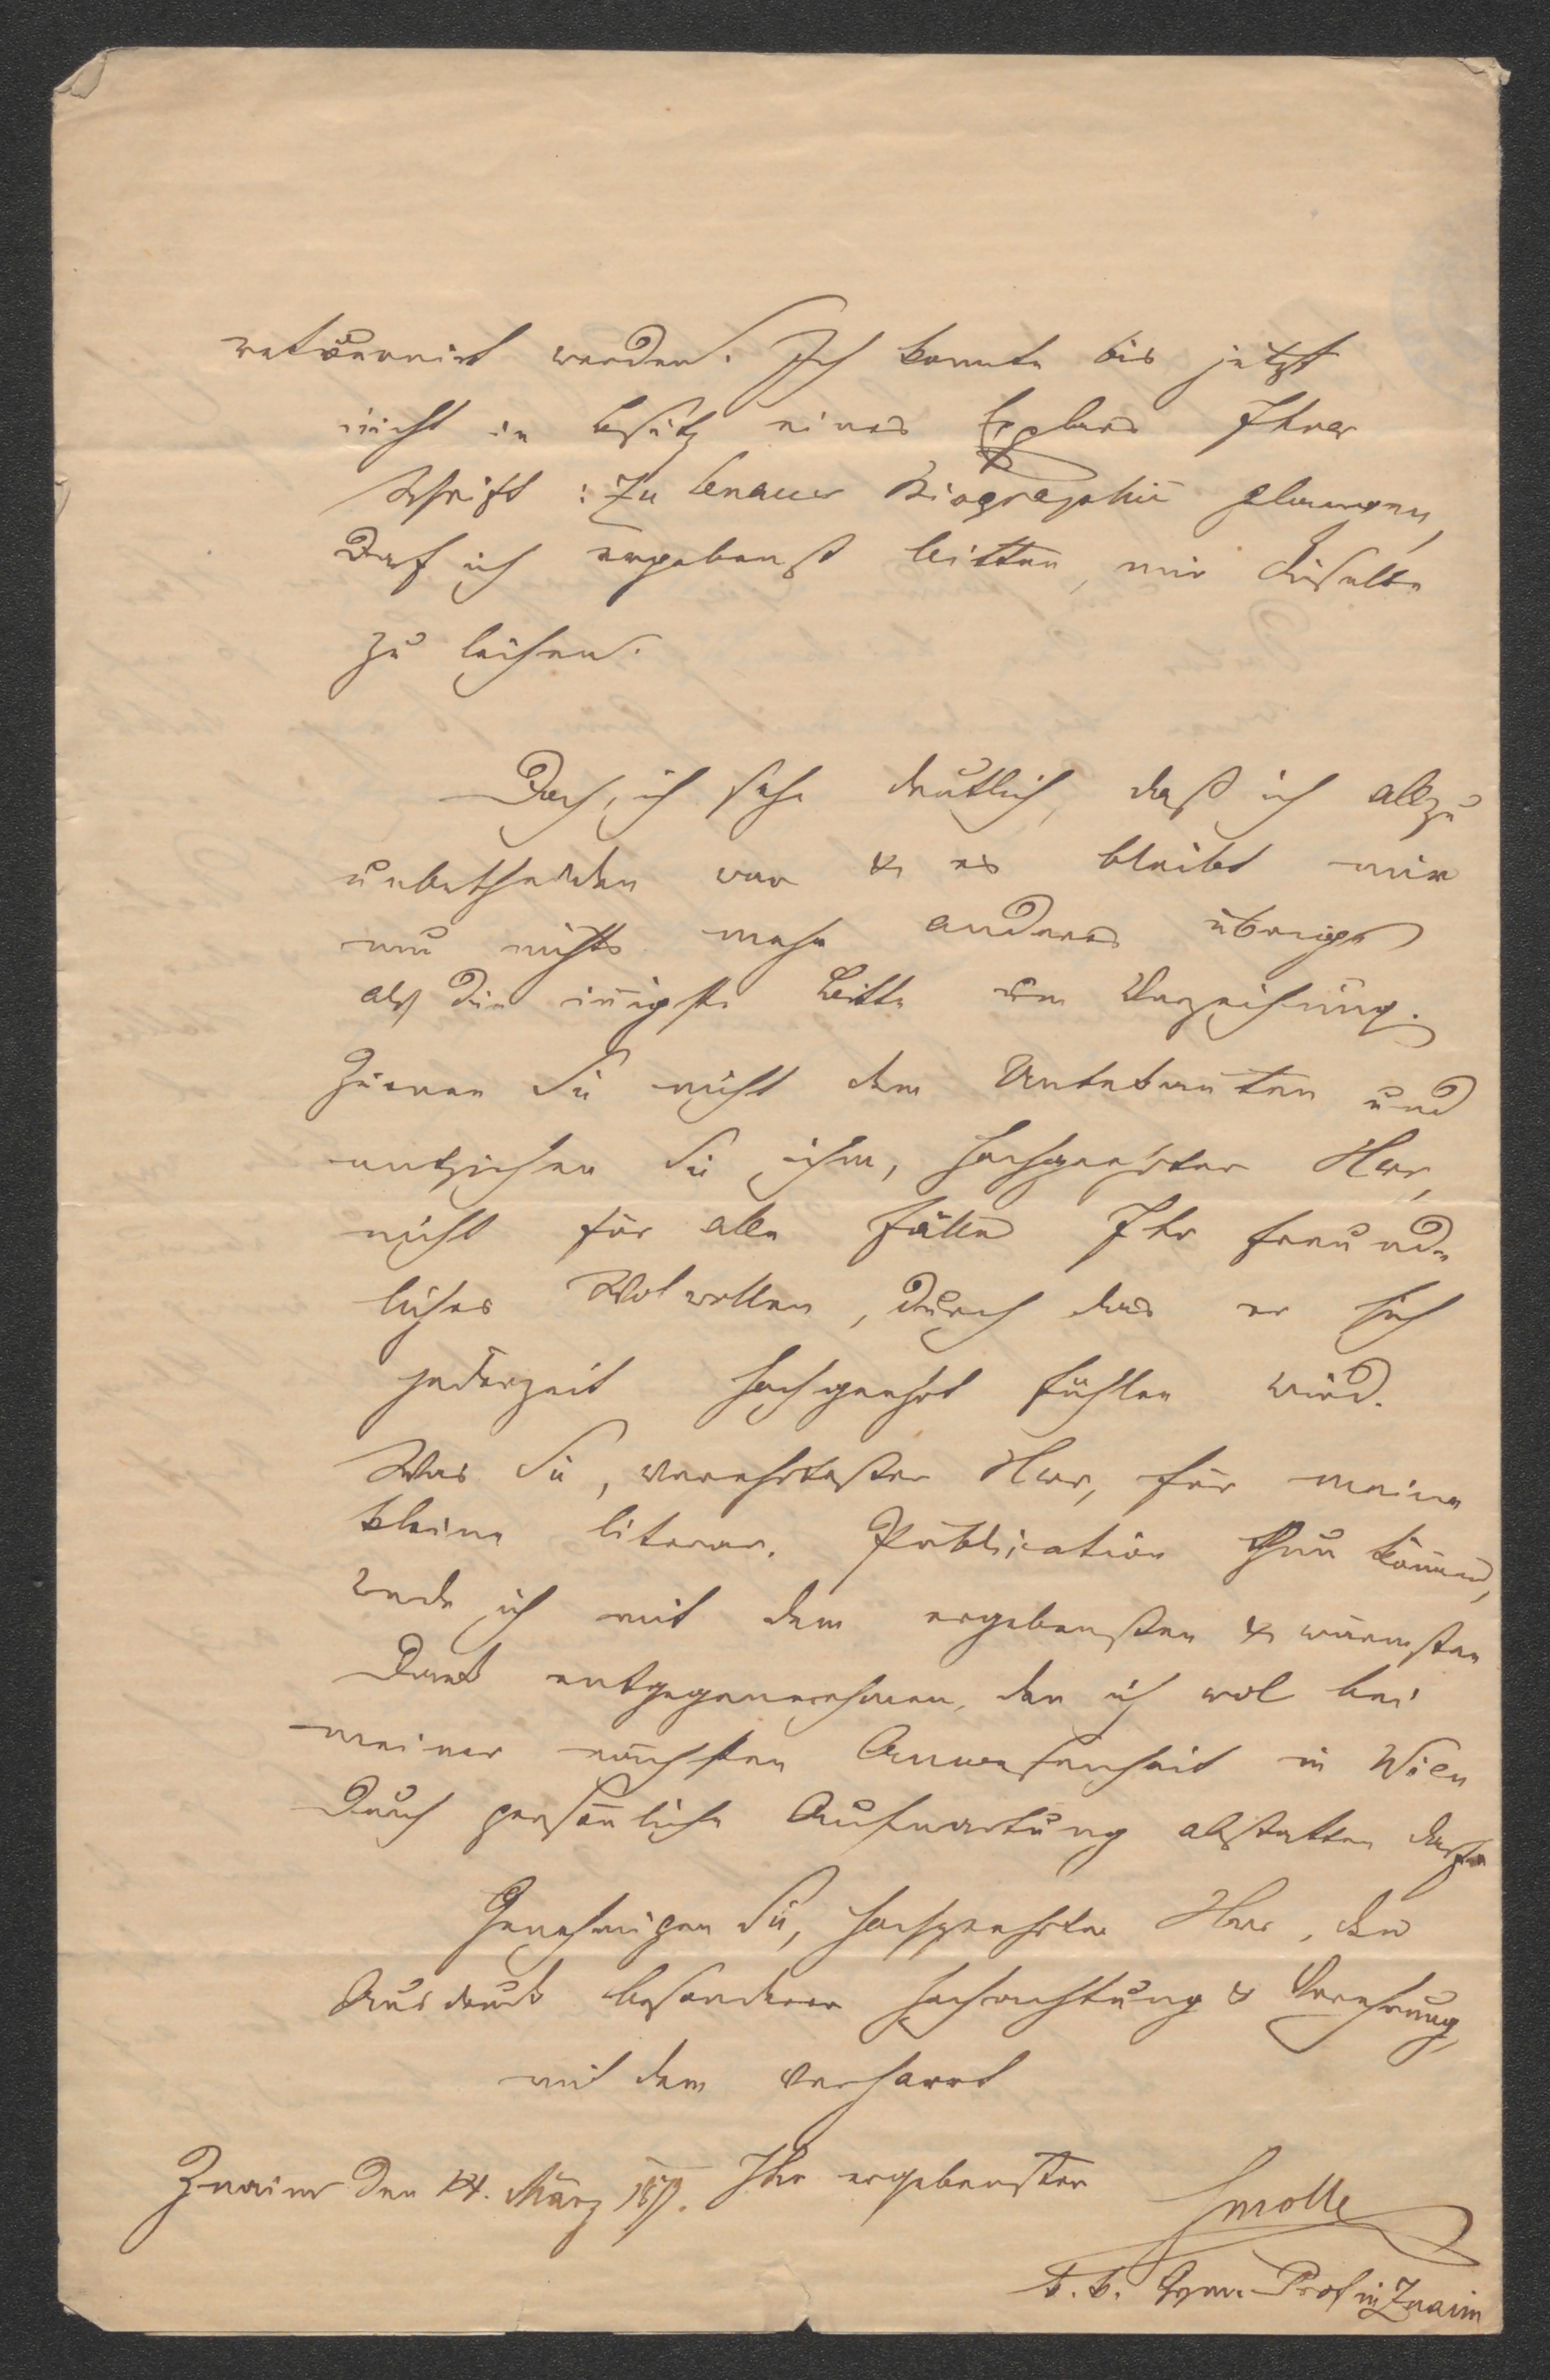 retournirt werden. Ich konnte bis jetzt
nicht in Besitz eines Explars Ihrer
Schrift: Zu Lenaus Biographie gelangen,
Darf ich ergebenst bitten, mir dieselbe
zu leihen.
Doch, ich sehe deutlich, daß ich allzu
unbescheiden war & es bleibt mir
nun nichts mehr anderes übrig
als die innigste Bitte um Verzeihung.
Zürnen Sie nicht dem Unbekannten und
entziehen Sie ihm, hochgeehrter Herr,
nicht für alle Fälle Ihr freund-
liches Wolwollen, durch das er sich
jederzeit hochgeehrt fühlen wird.
Was Sie, verehrtester Herr, für meine
kleine literar. Publication thun können,
werde ich mit dem ergebensten & wärmsten
Dank entgegennehmen, den ich wol bei
meiner nächsten Anwesenheit in Wien
durch persönliche Aufwartung abstatten darf.
Genehmigen Sie, hochgeehrter Herr, den
Ausdruck besonderer Hochachtung & Verehrung,
mit dem verharrt
Znaim den 14. März Ihr ergebenster Smolle
k. k. Gym. Prof in Znaim